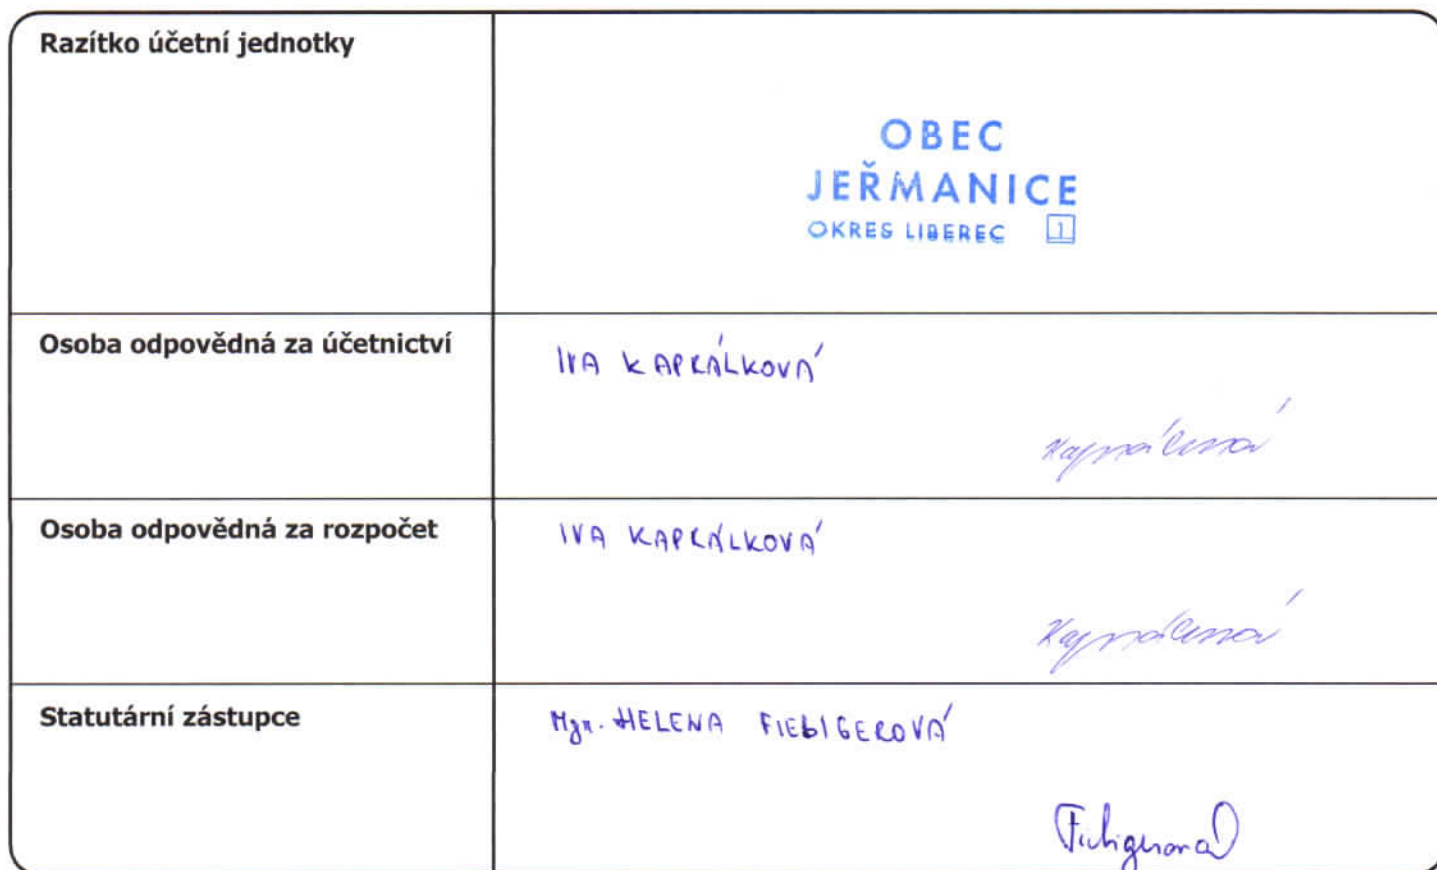 Razítko účetní jednotky
OBEC
JEŘMANICE
OKRES LIBEREC 1
Osoba odpovědná za účetnictví
IVA KAPRÁLKOVÁ
Kaprálková
Osoba odpovědná za rozpočet
IVA KAPRÁLKOVÁ
Kaprálková
Statutární zástupce
Mgr. HELENA FIEBIGEROVÁ
Fiebigerová